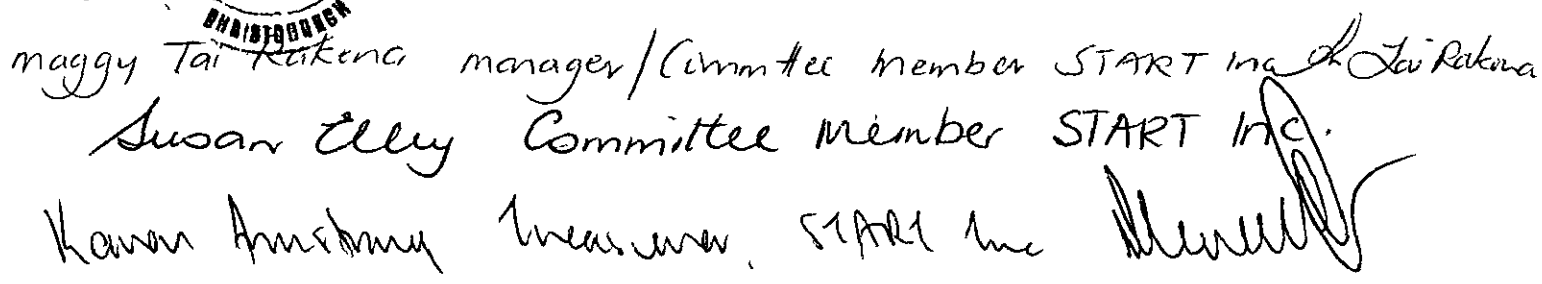 CHRISTCHURCH
Maggy Tai Rakena manager/Committee member START Inc Tai Rakena
Susan Elley Committee Member START Inc.
Karen Armstrong Treasurer, START Inc